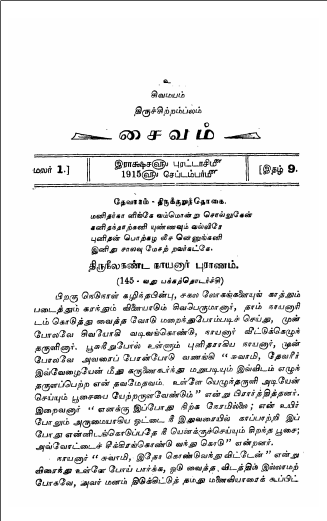 உ
சிவமயம்
திருச்சிற்றம்பலம்
சைவம்
மலர் 1.]
இராக்ஷஸ௵ புரட்டாசி௴
1915௵ செப்டம்பர்௴
[இதழ் 9.
தேவாரம் - திருக்குறுந்தொகை.
மனிதர்கா ளிங்கே வம்மொன்று சொல்லுகேன்
கனிதந்தாற்கனி யுண்ணவும் வல்லிரே
புனிதன் பொற்கழ லீச னெனுங்கனி
இனிது சாலவு மேசற் றவர்கட்கே.
திருநீலகண்ட நாயனார் புராணம்.
(145 - வது பக்கத்தொடர்ச்சி)
பிறகு நெடுநாள் கழிந்தபின்பு, சகல லோகங்களையுங் காத்தும்
படைத்தும் கரந்தும் விளையாடும் சிவபெருமானார், தாம் நாயனாரி
டம் கொடுத்து வைத்த வோடு மறைந்துபோம்படிச் செய்து, முன்
போலவே சிவயோகி வடிவங்கொண்டு, நாயனார் வீட்டுக்கெழுந்
தருளினார். பூசுநீறுபோல் உள்ளும் புனிதராகிய நாயனார், முன்
போலவே அவரைப் பேரன்போடு வணங்கி "சுவாமி, தேவரீர்
இவ்வேழையேன் மீது கருணைகூர்ந்து மறுபடியும் இவ்விடம் எழுந்
தருளப்பெற்ற என் தவமேதவம். உள்ளே யெழுந்தருளி அடியேன்
செய்யும் பூசையை யேற்றருளவேண்டும்" என்று பிரார்த்தித்தனர்.
இறைவனார் "எனக்கு இப்போது நிற்க நேரமில்லை; என் உயிர்
போலும் அருமையாகிய ஓட்டை நீ இதுவரையில் காப்பாற்றி இப்
போது என்னிடங்கொடுப்பதே நீ யெனக்குச்செய்யும் சிறந்த பூசை;
அவ்வோட்டைச் சீக்கிரங்கொண்டு வந்து கொடு" என்றனர்.
நாயனார் "சுவாமி, இதோ கொண்டுவந்து விட்டேன்" என்று
விரைந்து உள்ளே போய் பார்க்க, ஓடு வைத்த விடத்தில் இல்லாமற்
போகவே, அவர் மனம் இடுக்கிட்டுத் தமது மனைவியாரைக் கூப்பிட்